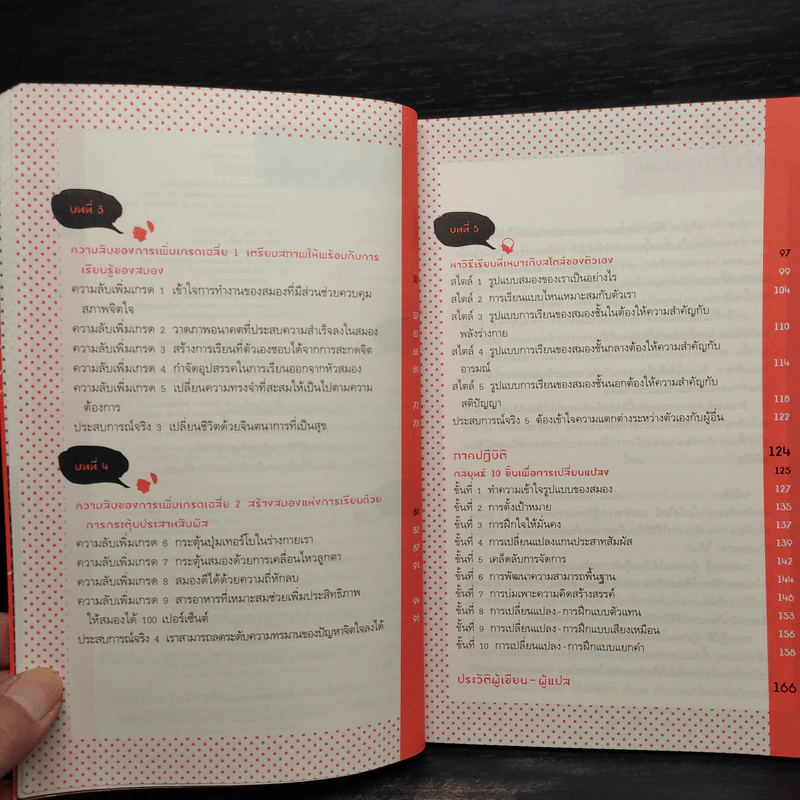 บทที่ 3
ความลับของการเพิ่มเกรดเฉลี่ย 1 เตรียมสภาพให้พร้อมกับการ
เรียนรู้ของสมอง
ความลับเพิ่มเกรด 1 เข้าใจการทำงานของสมองที่มีส่วนช่วยควบคุม
สภาพจิตใจ
ความลับเพิ่มเกรด 2 วาดภาพอนาคตที่ประสบความสำเร็จลงในสมอง
ความลับเพิ่มเกรด 3 สร้างการเรียนที่ตัวเองชอบได้จากการสะกดจิต
ความลับเพิ่มเกรด 4 กำจัดอุปสรรคในการเรียนออกจากหัวสมอง
ความลับเพิ่มเกรด 5 เปลี่ยนความทรงจำที่สะสมให้เป็นไปตามความ
ต้องการ
ประสบการณ์จริง 3 เปลี่ยนชีวิตด้วยจินตนาการที่เป็นสุข
บทที่ 4
ความลับของการเพิ่มเกรดเฉลี่ย 2 สร้างสมองแห่งการเรียนด้วย
การกระตุ้นประสาทสัมผัส
ความลับเพิ่มเกรด 6 กระตุ้นปุ่มเทอร์โบในร่างกายเรา
ความลับเพิ่มเกรด 7 กระตุ้นสมองด้วยการเคลื่อนไหวลูกตา
ความลับเพิ่มเกรด 8 สมองดีได้ด้วยความถี่หักลบ 91
ความลับเพิ่มเกรด 9 สารอาหารที่เหมาะสมช่วยเพิ่มประสิทธิภาพ
ให้สมองได้ 100 เปอร์เซ็นต์ 94
ประสบการณ์จริง 4 เราสามารถลดระดับความทรมานของปัญหาจิตใจลงได้ 96
บทที่ 5 97
หาวิธีเรียนที่เหมาะกับสไตล์ของตัวเอง
สไตล์ 1 รูปแบบสมองของเราเป็นอย่างไร 99
สไตล์ 2 การเรียนแบบไหนเหมาะสมกับตัวเรา 104
สไตล์ 3 รูปแบบการเรียนของสมองชั้นในต้องให้ความสำคัญกับ
พลังร่างกาย 110
สไตล์ 4 รูปแบบการเรียนของสมองชั้นกลางต้องให้ความสำคัญกับ
อารมณ์ 114
สไตล์ 5 รูปแบบการเรียนของสมองชั้นนอกต้องให้ความสำคัญกับ
สติปัญญา 118
ประสบการณ์จริง 5 ต้องเข้าใจความแตกต่างระหว่างตัวเองกับผู้อื่น 122
ภาคปฏิบัติ 124
กลยุทธ์ 10 ขั้นเพื่อการเปลี่ยนแปลง 125
ขั้นที่ 1 ทำความเข้าใจรูปแบบของสมอง 127
ขั้นที่ 2 การตั้งเป้าหมาย 135
ขั้นที่ 3 การฝึกใจให้มั่นคง 137
ขั้นที่ 4 การเปลี่ยนแปลงแกนประสาทสัมผัส 139
ขั้นที่ 5 เคล็ดลับการจัดการ 142
ขั้นที่ 6 การพัฒนาความสามารถพื้นฐาน 144
ขั้นที่ 7 การบ่มเพาะความคิดสร้างสรรค์ 146
ขั้นที่ 8 การเปลี่ยนแปลง-การฝึกแบบตัวแทน 153
ขั้นที่ 9 การเปลี่ยนแปลง-การฝึกแบบเสียงเหมือน 156
ขั้นที่ 10 การเปลี่ยนแปลง-การฝึกแบบแยกคำ 158
ประวัติผู้เขียน-ผู้แปล 166